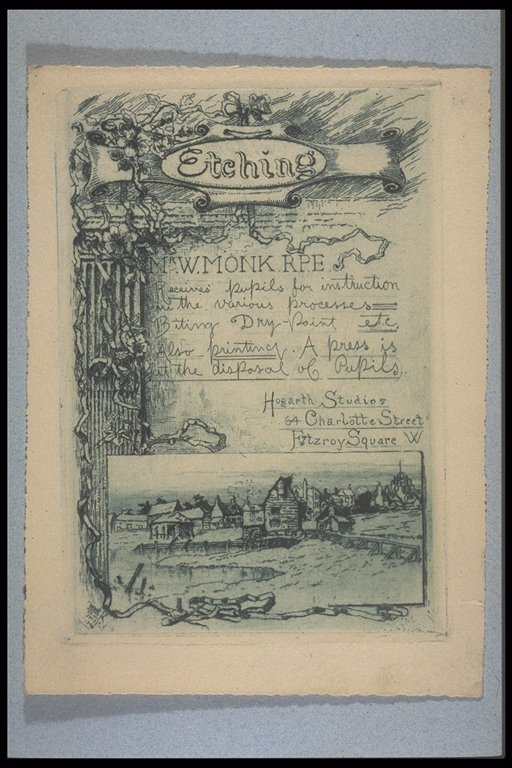 Etching
Mr. W. MONK. R.P.E.
Receives pupils for instruction
in the various processes
Biting Dry-Point etc.
Also printing. A press is
at the disposal of Pupils.
Hogarth Studios
64 Charlotte Street
Fitzroy Square W